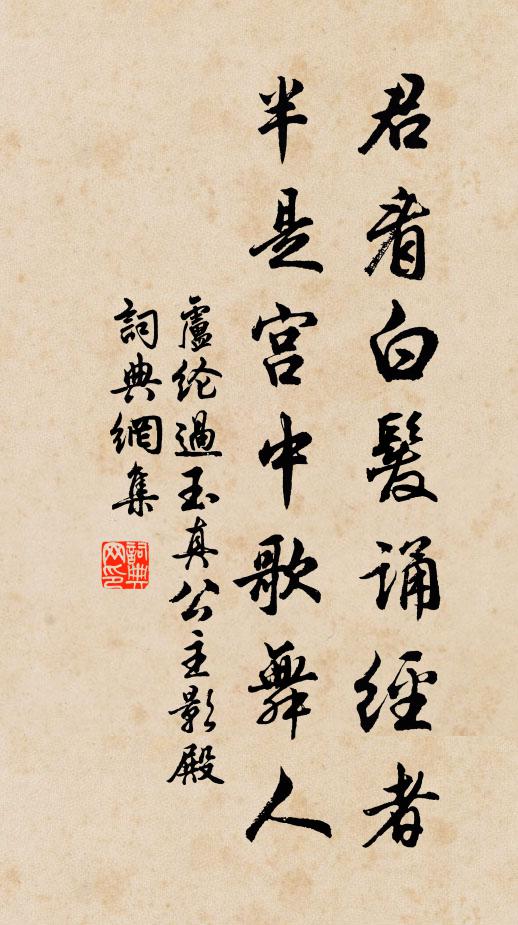 君看白髮誦經者
半是宮中歌舞人
盧纶過玉真公主影殿
詞典網集
詞典网印